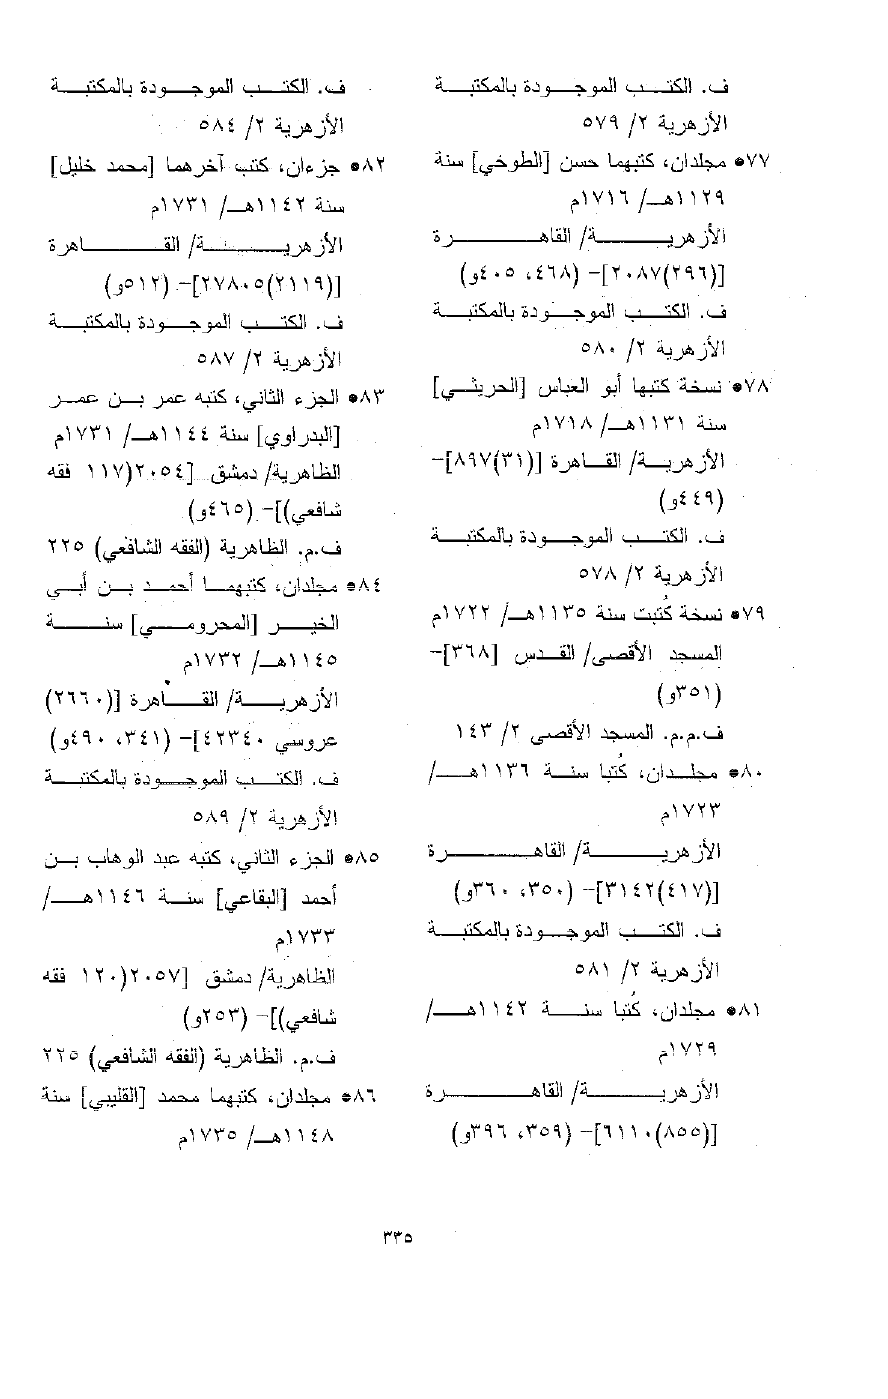 ف. الكتب الموجودة بالمكتبة
الأزهرية ٢/ ٥٧٩
٧٧* مجلدان، كتبهما حسن [الطوخي] سنة
١١٢٩هـ/ ١٧١٦م
الأزهرية/ القاهرة
[(٢٩٦)٢٠٨٧]- (٤٦٨، ٤٠٥و)
ف. الكتب الموجودة بالمكتبة
الأزهرية ٢/ ٥٨٠
٧٨* نسخة كتبها أبو العباس [الحريثي]
سنة ١١٣١هـ/ ١٧١٨م
الأزهرية/ القاهرة [(٣١)٨٩٧]-
(٤٤٩و)
ف. الكتب الموجودة بالمكتبة
الأزهرية ٢/ ٥٧٨
٧٩* نسخة كُتبت سنة ١١٣٥هـ/ ١٧٢٢م
المسجد الأقصى/ القدس [٣٦٨]-
(٣٥١و)
ف.م.م. المسجد الأقصى ٢/ ١٤٣
٨٠* مجلدان، كُتبا سنة ١١٣٦هـ/
١٧٢٣م
الأزهرية/ القاهرة
[(٤١٧)٣١٤٢]- (٣٥٠، ٣٦٠و)
ف. الكتب الموجودة بالمكتبة
الأزهرية ٢/ ٥٨١
٨١* مجلدان، كُتبا سنة ١١٤٢هـ/
١٧٢٩م
الأزهرية/ القاهرة
[(٨٥٥)٦١١٠]- (٣٥٩، ٣٩٦و)
ف. الكتب الموجودة بالمكتبة
الأزهرية ٢/ ٥٨٤
٨٢* جزءان، كتب آخرهما [محمد خليل]
سنة ١١٤٢هـ/ ١٧٣١م
الأزهرية/ القاهرة
[(٢١١٩)٢٧٨٠٥]- (٥١٢و)
ف. الكتب الموجودة بالمكتبة
الأزهرية ٢/ ٥٨٧
٨٣* الجزء الثاني، كتبه عمر بن عمر
[البدراوي] سنة ١١٤٤هـ/ ١٧٣١م
الظاهرية/ دمشق [٢٠٥٤(١١٧ فقه
شافعي)]- (٤٦٥و)
ف.م. الظاهرية (الفقه الشافعي) ٢٢٥
٨٤* مجلدان، كتبهما أحمد بن أبي
الخير [المحرومي] سنة
١١٤٥هـ/ ١٧٣٢م
الأزهرية/ القاهرة [(٢٦٦٠)
عروسي ٤٢٣٤٠]- (٣٤١، ٤٩٠و)
ف. الكتب الموجودة بالمكتبة
الأزهرية ٢/ ٥٨٩
٨٥* الجزء الثاني، كتبه عبد الوهاب بن
أحمد [البقاعي] سنة ١١٤٦هـ/
١٧٣٣م
الظاهرية/ دمشق [٢٠٥٧(١٢٠ فقه
شافعي)]- (٢٥٣و)
ف.م. الظاهرية (الفقه الشافعي) ٢٢٥
٨٦* مجلدان، كتبهما محمد [القليبي] سنة
١١٤٨هـ/ ١٧٣٥م
٣٣٥